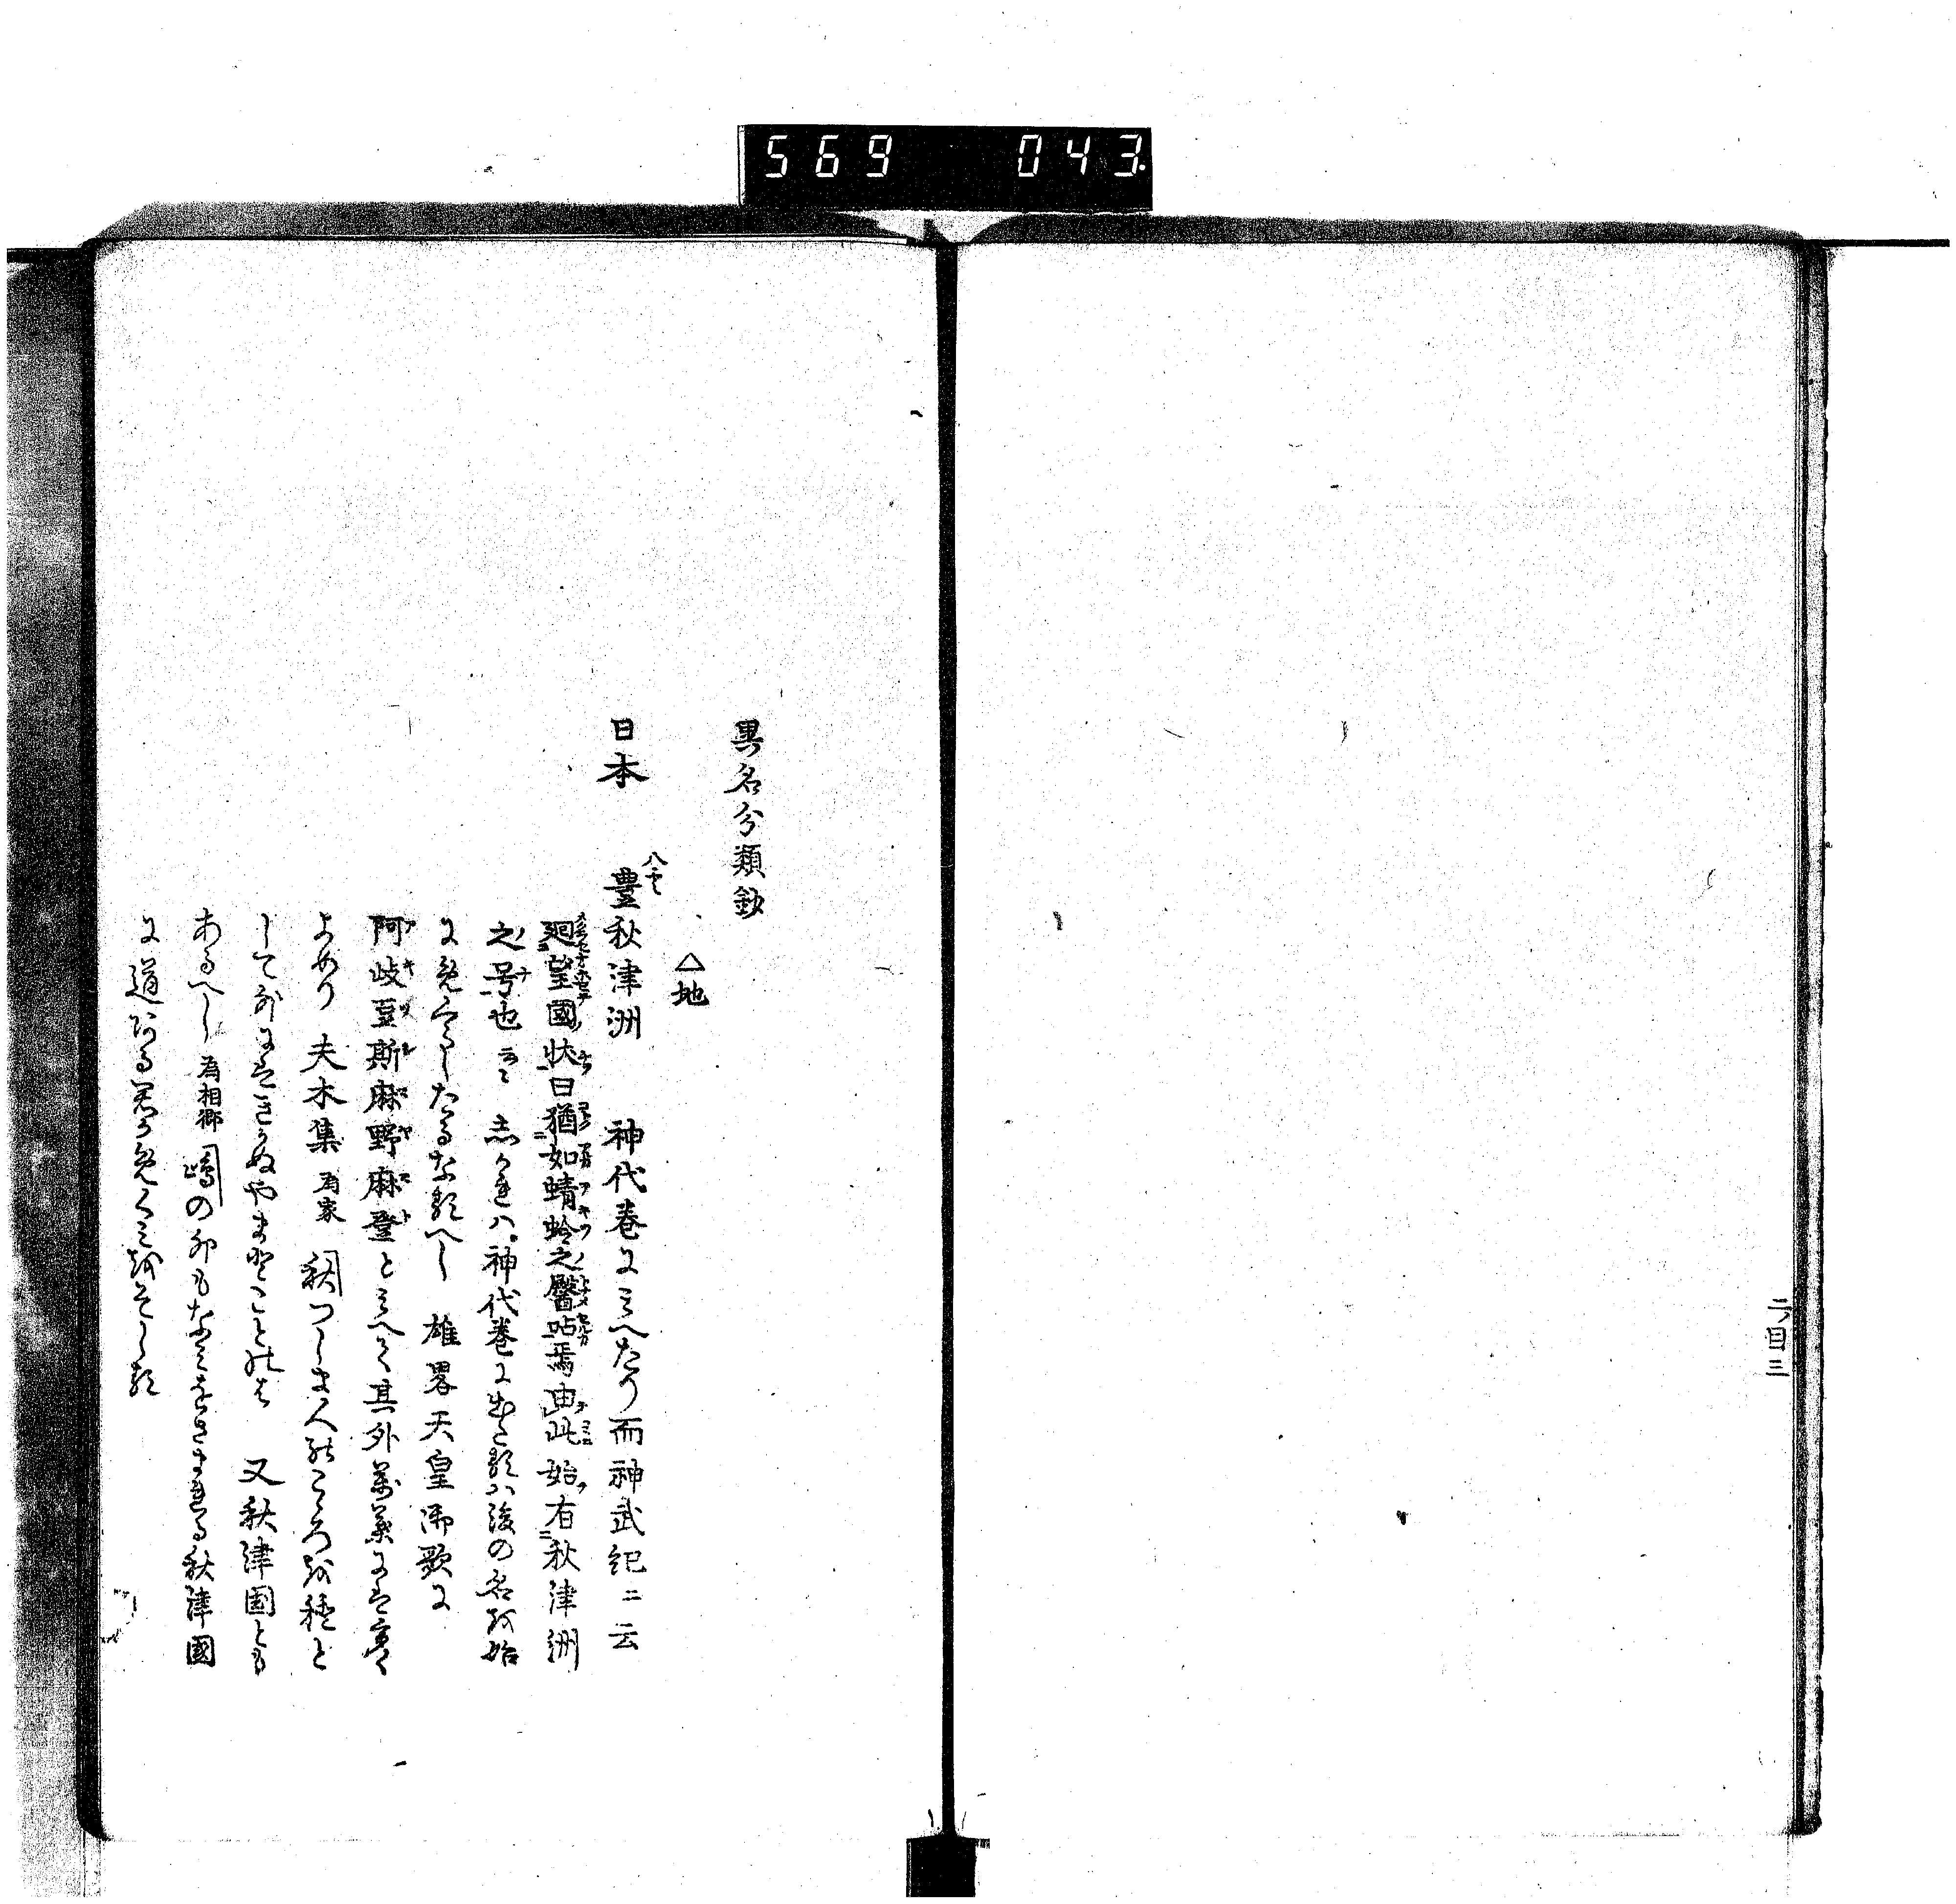 569 043
二ノ目三
異名分類鈔
△地
日本 八雲 豊秋津洲 神代巻にみへたり而神武紀ニ云
廻望國状曰猶如蜻蛉之臀呫焉由此始有秋津洲
之号也云々 志かれハ神代巻に出たるハ後の名を始
にめくらしたるなるへし 雄畧天皇御歌に
阿岐豆斯麻野麻登とみへて其外萬葉にも
よめり 夫木集 為家 秋つしま人のこゝろを種と
して 又秋津国とも
あるへし 為相卿 嶋の外もなみをさまれる秋津國
に道ある君かめくみをそしる